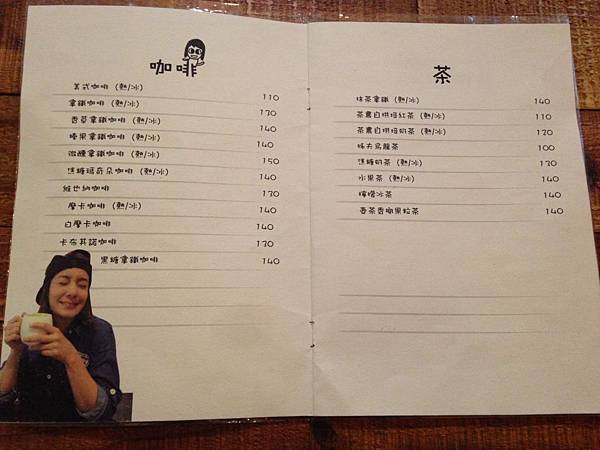 咖啡
美式咖啡 (熱/冰) 110
拿鐵咖啡 (熱/冰) 130
香草拿鐵咖啡 (熱/冰) 140
榛果拿鐵咖啡 (熱/冰) 140
微醺拿鐵咖啡 (熱/冰) 150
焦糖瑪奇朵咖啡 (熱/冰) 140
維也納咖啡 130
摩卡咖啡 (熱/冰) 140
白摩卡咖啡 140
卡布其諾咖啡 130
黑糖拿鐵咖啡 140
茶
抹茶拿鐵 (熱/冰) 140
茶農自烘培紅茶 (熱/冰) 110
茶農自烘培奶茶 (熱/冰) 120
姊夫烏龍茶 100
焦糖奶茶 (熱/冰) 130
水果茶 (熱/冰) 140
檸檬冰茶 140
香柚果粒茶 140